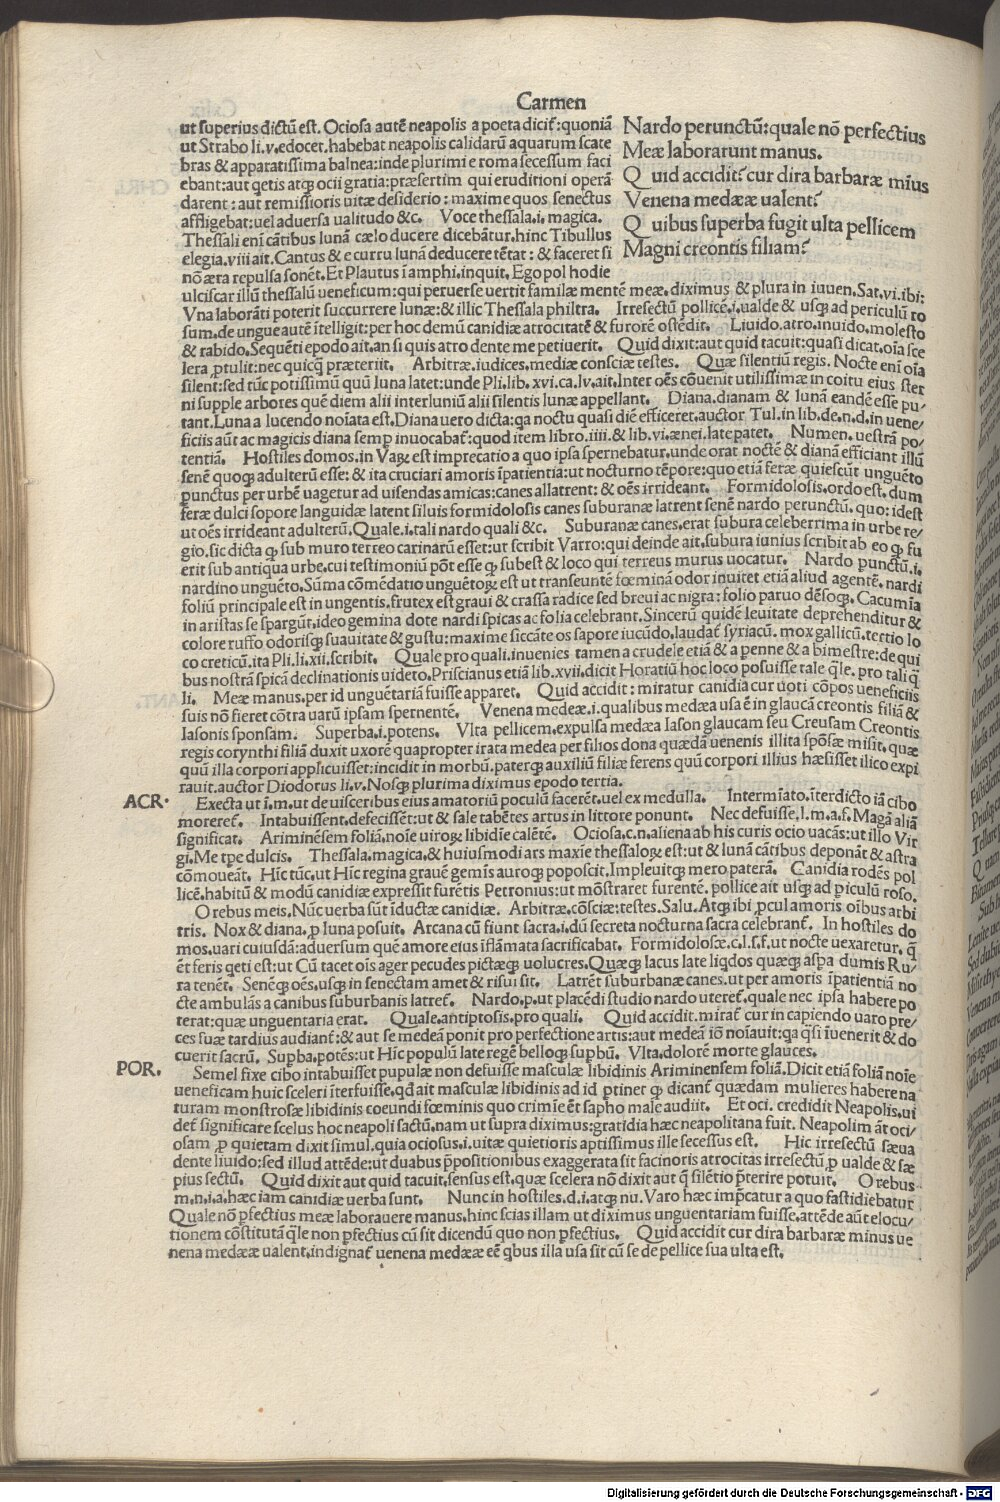 Carmen
Nardo perunctũ: quale nõ perfectius
Meæ laborarunt manus.
Quid accidit? cur dira barbaræ minus
Venena medææ ualent?
Quibus superba fugit ulta pellicem
Magni creontis filiam?
ut superius dictũ est. Ociosa autẽ neapolis a poeta dicit̃: quoniã
ut Strabo li.v. edocet. habebat neapolis calidarũ aquarum scate
bras & apparatissima balnea: inde plurimi e roma secessum faci
ebant: aut q̃etis atq; ocii gratia: præsertim qui eruditioni operã
darent: aut remissioris uitæ desiderio: maxime quos senectus
affligebat: uel aduersa ualitudo &c. Voce thessala.i. magica.
Thessali enĩ cãtibus lunã cælo ducere dicebãtur. hinc Tibullus
elegia. viii ait. Cantus & e curru lunã deducere tẽtat: & faceret si
nõ æra repulsa sonẽt. Et Plautus ĩ amphi. inquit. Ego pol hodie
ulciscar illũ thessalũ ueneficum: qui peruerse uertit familæ mentẽ meæ. diximus & plura in iuuen. Sat. vi. ibi:
Vna laborãti poterit succurrere lunæ: & illic Thessala philtra. Irresectũ pollicẽ.i. ualde & usq; ad periculũ ro
sum. de ungue autẽ ĩtelligit: per hoc demũ canidiæ atrocitatẽ & furorẽ ostẽdit. Liuido. atro. inuido. molesto
& rabido. Sequẽti epodo ait. an si quis atro dente me petiuerit. Quid dixit: aut quid tacuit: quasi dicat. oĩa sce
lera ꝓtulit: nec quicq̃ præteriit. Arbitræ. iudices. mediæ consciæ testes. Quæ silentiũ regis. Nocte enĩ oĩa
silent: sed tũc potissimũ quũ luna latet: unde Pli. lib. xvi. ca. lv. ait. Inter oẽs cõuenit utilissimæ in coitu eius ster
ni supple arbores quẽ diem alii interluniũ alii silentis lunæ appellant. Diana. dianam & lunã eandẽ esse pu/
tant. Luna a lucendo noĩata est. Diana uero dicta: q̃a noctu quasi diẽ efficeret. auctor Tul. in lib. de. n. d. in uene/
ficiis aũt ac magicis diana semꝑ inuocabat̃: quod item libro. iiii. & lib. vi. ænei. late patet. Numen. uestrã po/
tentiã. Hostiles domos. in Vaꝝ est imprecatio a quo ipsa spernebatur. unde orat noctẽ & dianã efficiant illũ
senẽ quoq; adulterũ esse: & ita cruciari amoris ĩpatientia: ut nocturno tẽpore: quo etiã feræ quiescũt unguẽto
punctus per urbẽ uagetur ad uisendas amicas: canes allatrent: & oẽs irrideant. Formidolosis. ordo est. dum
feræ dulci sopore languidæ latent siluis formidolosis canes suburanæ latrent senẽ nardo perunctũ. quo: idest
ut oẽs irrideant adulterũ. Quale.i. tali nardo quali &c. Suburanæ canes. erat subura celeberrima in urbe re/
gio. sic dicta q; sub muro terreo carinarũ esset: ut scribit Varro: qui deinde ait. subura iunius scribit ab eo q; fu
erit sub antiqua urbe. cui testimoniũ põt esse q; subest & loco qui terreus murus uocatur. Nardo punctũ.i.
nardino unguẽto. Sũma cõmẽdatio unguẽtoꝝ est ut transeuntẽ fœminã odor inuitet etiã aliud agentẽ. nardi
foliũ principale est in ungentis. frutex est graui & crassa radice sed breui ac nigra: folio paruo dẽsoq;. Cacumĩa
in aristas se spargũt. ideo gemina dote nardi spicas ac folia celebrant. Sincerũ quidẽ leuitate deprehenditur &
colore ruffo odorisq; suauitate & gustu: maxime siccãte os sapore iucũdo. laudat̃ syriacũ. mox gallicũ. tertio lo
co creticũ. ita Pli. li. xii. scribit. Quale pro quali. inuenies tamen a crudele etiã & a penne & a bimestre: de qui
bus nostrã spicã declinationis uideto. Priscianus etiã lib. xvii. dicit Horatiũ hoc loco posuisse tale q̃le. pro tali q̃
li. Meæ manus. per id unguẽtariã fuisse apparet. Quid accidit: miratur canidia cur uoti cõpos ueneficiis
suis nõ fieret cõtra uarũ ipsam spernentẽ. Venena medeæ.i. qualibus medæa usa ẽ in glaucã creontis filiã &
Iasonis sponsam. Superba.i. potens. Vlta pellicem. expulsa medæa Iason glaucam seu Creusam Creontis
regis corynthi filiã duxit uxorẽ quapropter irata medea per filios dona quædã uenenis illita spõsæ misit. quæ
quũ illa corpori applicuisset: incidit in morbũ. paterq; auxiliũ filiæ ferens quũ corpori illius hæsisset ilico expi
rauit. auctor Diodorus li. v. Nosq; plurima diximus epodo tertia.
ACR. Execta ut ĩ. m. ut de uisceribus eius amatoriũ poculũ facerẽt. uel ex medulla. Intermĩato. ĩterdicto iã cibo
moreret̃. Intabuissent. defecissẽt: ut & sale tabẽtes artus in littore ponunt. Nec defuisse. l. m. a. f. Magã aliã
significat. Ariminẽsem foliã. noĩe uiroꝝ libidĩe calẽtẽ. Ociosa. c. n. aliena ab his curis ocio uacãs: ut illo Vir
gi. Me tꝑe dulcis. Thessala. magica. & huiusmodi ars maxĩe thessaloꝝ est: ut & lunã cãtibus deponãt & astra
cõmoueãt. Hĩc tũc. ut Hĩc regina grauẽ gemĩs auroq; poposcit. Impleuitq; mero paterã. Canidia rodẽs pol
licẽ. habitũ & modũ canidiæ expressit furẽtis Petronius: ut mõstraret furentẽ. pollice ait usq; ad ꝑiculũ roso.
O rebus meis. Nũc uerba sũt ĩductæ canidiæ. Arbitræ. cõsciæ: testes. Salu. Atq; ibi ꝓcul amoris oĩbus arbi
tris. Nox & diana. ꝓ luna posuit. Arcana cũ fiunt sacra.i. dũ secreta nocturna sacra celebrant̃. In hostiles do
mos. uari cuiusdã: aduersum quẽ amore eius ĩflãmata sacrificabat. Formidolosæ. c. l. s. f. ut nocte uexaretur. q̃
ẽt feris q̃eti est: ut Cũ tacet oĩs ager pecudes pictæq; uolucres. Quæq; lacus late liq̃dos quæq; aspa dumis Ru/
ra tenẽt. Senẽq; oẽs. usq; in senectam amet & risui sit. Latrẽt suburbanæ canes. ut per amoris ĩpatientiã no
cte ambulãs a canibus suburbanis latret̃. Nardo. p. ut placẽdi studio nardo uteret̃. quale nec ipsa habere po
terat: quæ unguentaria erat. Quale. antiptosis. pro quali. Quid accidit. mirat̃ cur in capiendo uaro pre/
ces suæ tardius audiant̃: & aut se medeã ponit pro perfectione artis: aut medeã iõ noĩauit: q̃a q̃si ĩuenerit & do
cuerit sacrũ. Supba. potẽs: ut Hĩc populũ late regẽ belloq; supbũ. Vlta. dolorẽ morte glauces.
POR. Semel fixe cibo intabuisset pupulæ non defuisse masculæ libidinis Ariminensem foliã. Dicit etiã foliã noĩe
ueneficam huic sceleri ĩterfuisse. q̃d ait masculæ libidinis ad id ꝑtinet q; dicant̃ quædam mulieres habere na
turam monstrosæ libidinis coeundi fœminis quo crimĩe ẽt sapho male audiit. Et oci. credidit Neapolis. ui
det̃ significare scelus hoc neapoli factũ. nam ut supra diximus: gratidia hæc neapolitana fuit. Neapolim ãt oci/
osam ꝓ quietam dixit simul. quia ociosus.i. uitæ quietioris aptissimus ille secessus est. Hic irresectũ sæua
dente liuido: sed illud attẽde: ut duabus p̃positionibus exaggerata sit facinoris atrocitas irresectũ ꝓ ualde & sæ
pius sectũ. Quid dixit aut quid tacuit. sensus est. quæ scelera nõ dixit aut q̃ silẽtio p̃terire potuit. O rebus
m. n. i. a. hæc iam canidiæ uerba sunt. Nunc in hostiles. d. i. atq; nu. Varo hæc imp̃catur a quo fastidiebatur
Quale nõ ꝑfectius meæ laborauere manus. hinc scias illam ut diximus unguentariam fuisse. attẽde aũt elocu/
tionem cõstitutã q̃le non ꝑfectius cũ sit dicendũ quo non ꝑfectius. Quid accidit cur dira barbaræ minus ue
nena medææ ualent. indignat̃ uenena medææ eẽ q̃bus illa usa sit cũ se de pellice sua ulta est.
Digitalisierung gefördert durch die Deutsche Forschungsgemeinschaft - DFG